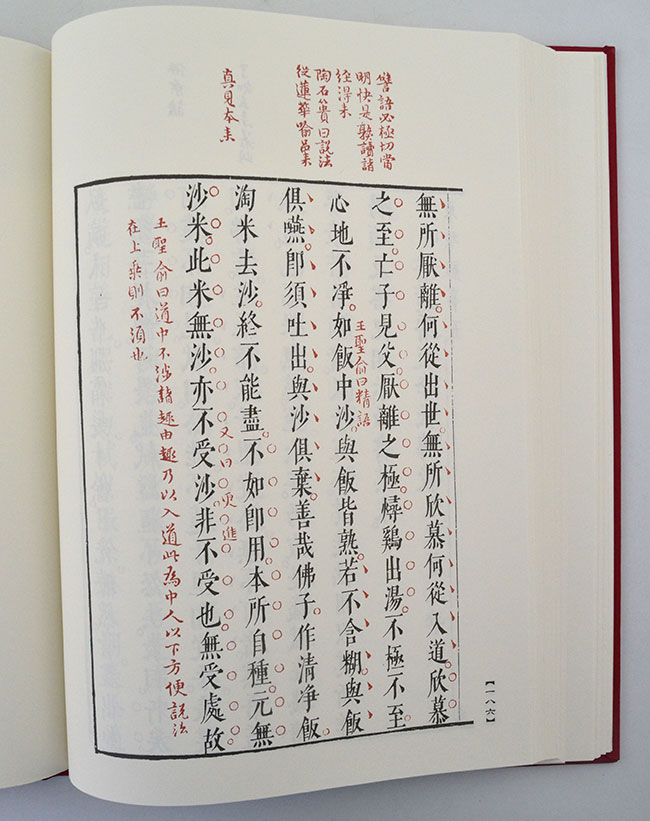 譬語必極切當
明快是熟讀諸
經得來
陶石簣曰説法
從蓮華喻品來
真見本來
無所厭離。何從出世。無所欣慕。何從入道。欣慕
之至。亡子見父。厭離之極。燖鷄出湯。不極不至
心地不淨。如飯中沙。與飯皆熟。若不含糊。與飯
王聖俞曰精語
俱嚥。卽須吐出。與沙俱棄。善哉佛子。作清淨飯。
淘米去沙。終不能盡。不如卽用。本所自種。元無
沙米。此米無沙。亦不受沙。非不受也。無受處故
又曰更進
王聖俞曰道中不涉諸趣由趣乃以入道此為中人以下方便説法
在上乘則不須也
【一八六】